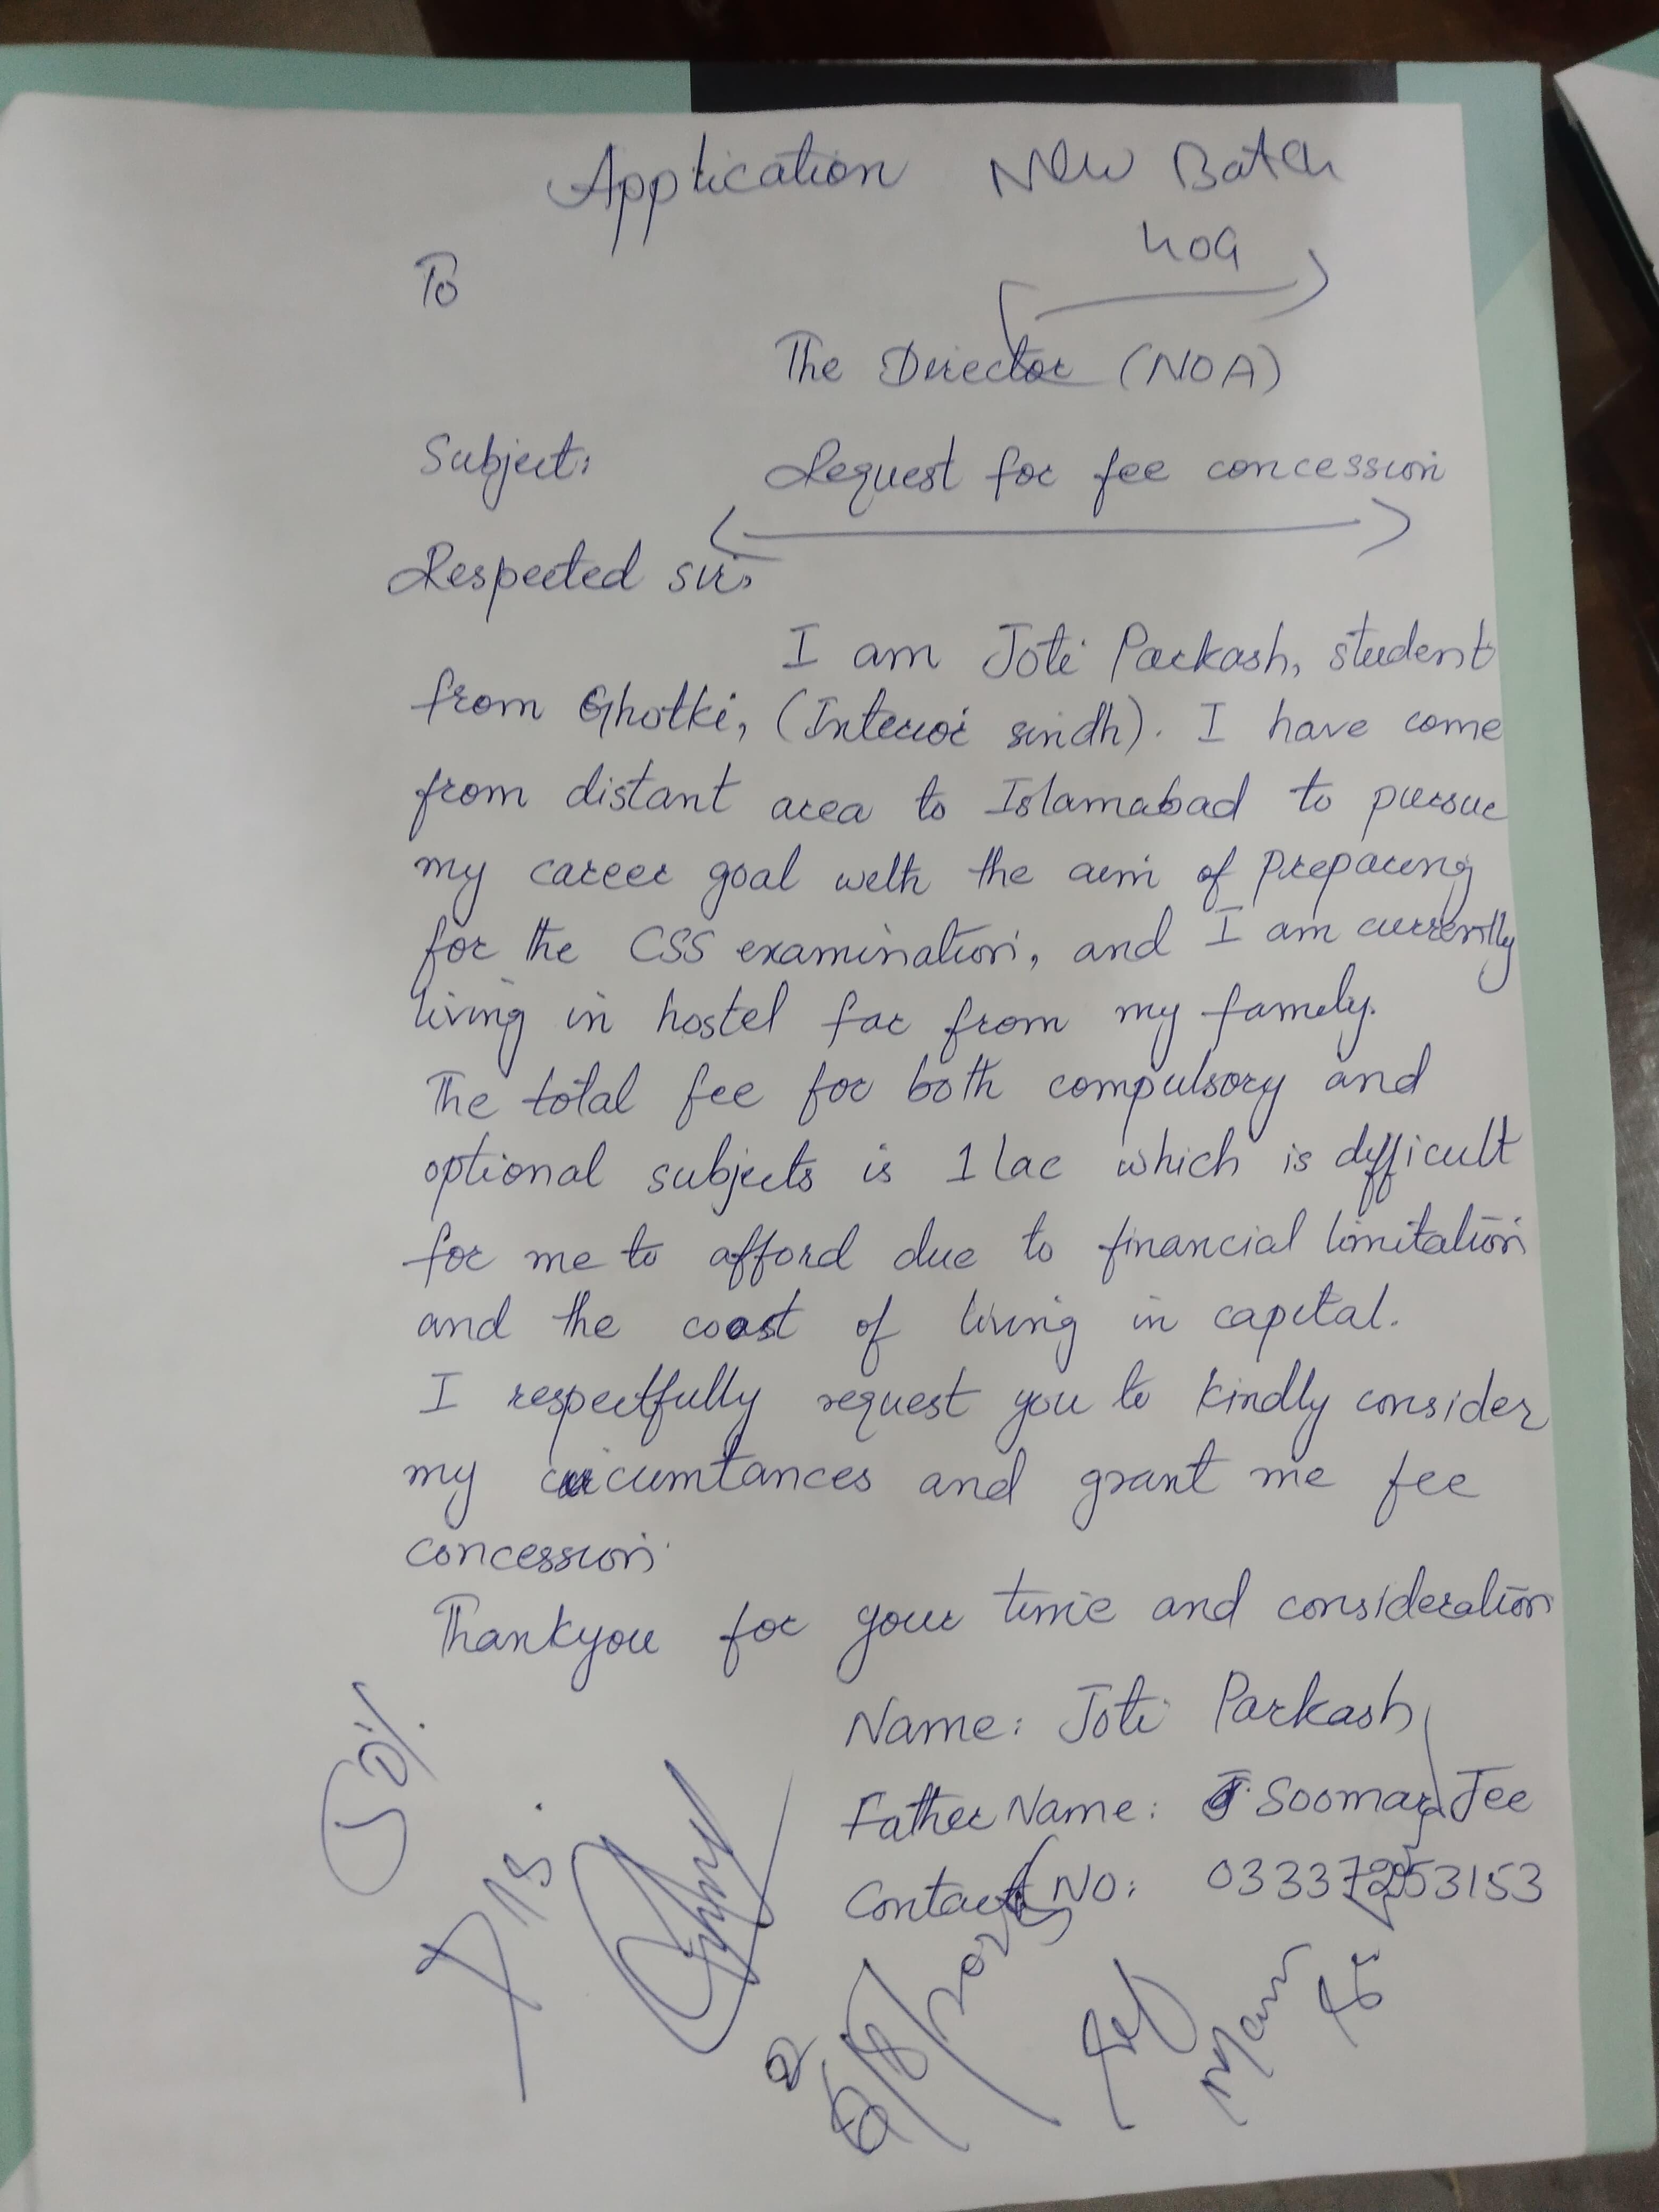 Application New Batch
409
To
The Director (NOA)
Subject: Request for fee concession
Respected sir,
I am Joti Parkash, student
from Ghotki, (Interior sindh). I have come
from distant area to Islamabad to pursue
my career goal with the aim of preparing
for the CSS examination, and I am currently
living in hostel far from my family.
The total fee for both compulsory and
optional subjects is 1 lac which is difficult
for me to afford due to financial limitation
and the coast of living in capital.
I respectfully request you to kindly consider
my circumtances and grant me fee
concession.
Thankyou for your time and consideration
Name: Joti Parkash
Father Name: Soomar Jee
Contact NO:
50%